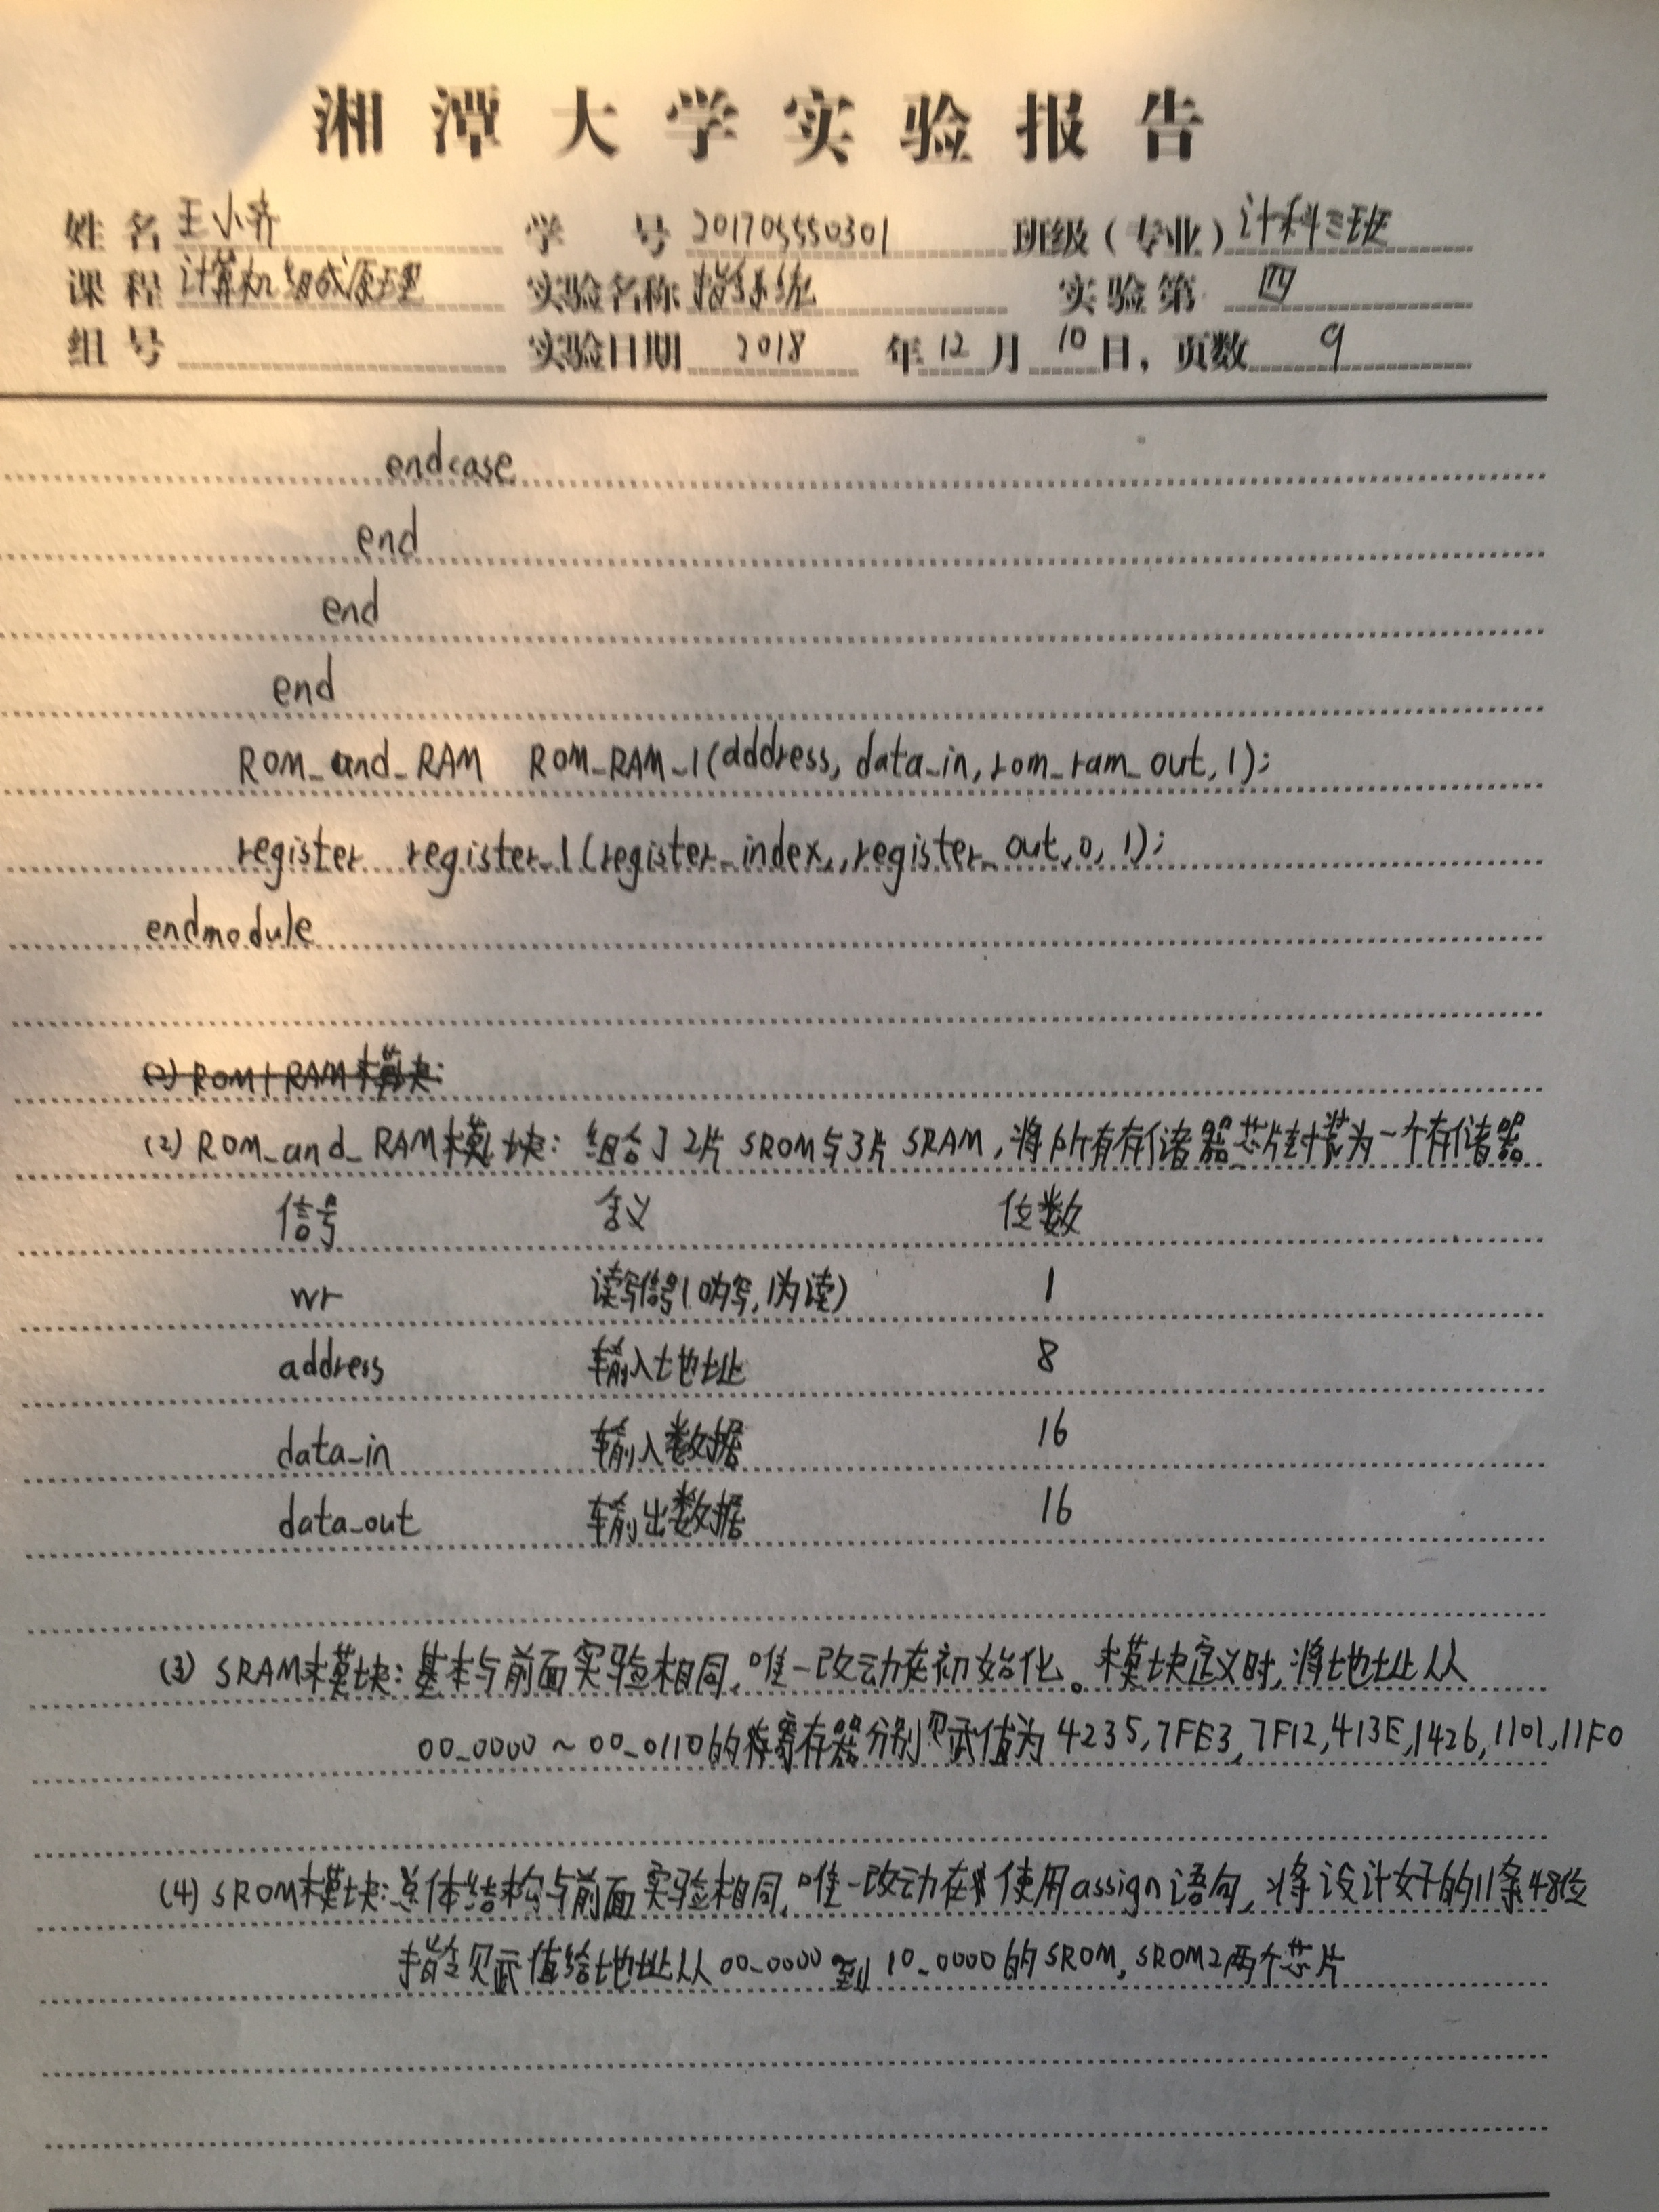 湘潭大学实验报告
姓名 王小齐 学号 201705550301 班级（专业）计科三班
课程 计算机组成原理 实验名称 指系统 实验第 四
组号 实验日期 2018 年 12 月 10 日，页数 9
endcase
end
end
end
ROM_and_RAM ROM_RAM_1(adddress, data_in, rom_ram_out, 1);
register register_1(register_index,,register_out,0,1);
endmodule
(2) ROM+RAM模块:
(2) ROM_and_RAM模块: 组合了2片SROM与3片SRAM,将所有存储器芯片封装为一个存储器
信号 含义 位数
wr 读写信号(0为写,1为读) 1
address 输入地址 8
data_in 输入数据 16
data_out 输出数据 16
(3) SRAM模块: 基本与前面实验相同,唯一改动在初始化。模块定义时,将地址从
00_0000~00_0110的寄存器分别赋值为4235,7FE3,7F12,413E,1426,1101,11F0
(4) SROM模块: 总体结构与前面实验相同,唯一改动在使用assign语句,将设计好的11条48位
指令赋值给地址从00_0000到10_0000的SROM,SROM2两个芯片